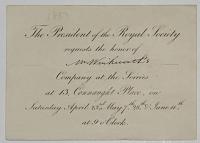 1887
The President of the Royal Society
requests the honor of
Mr Wentworth's
Company at the Soirées
at 13, Connaught Place, on
Saturday April 23rd May 7th, 28th & June 11th
at 9 o'Clock.